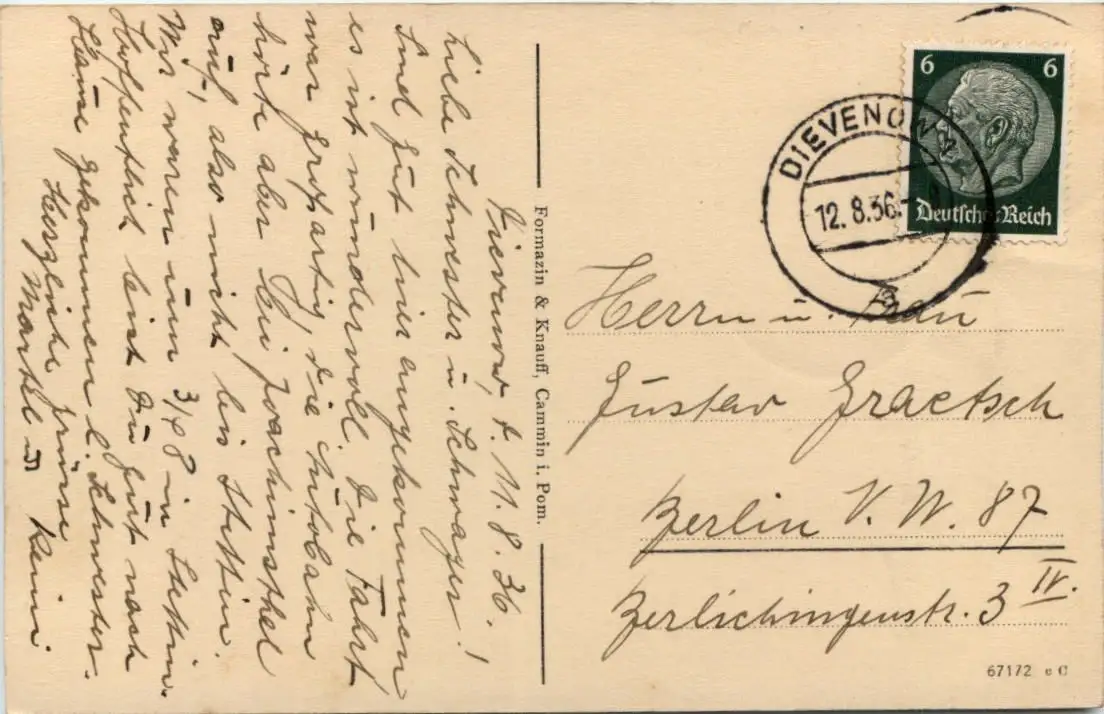 Dievenow, d. 11.8.36.
Liebe Schwester u. Schwager!
Sind gut hier angekommen
es ist wundervoll. Die Fahrt
war großartig, die Autobahn
hörte aber bei Joachimsthal
auf, also nicht bis Stettin.
Wir waren um 3/4 8 in Stettin.
Hoffentlich bist du gut nach
Hause gekommen l. Schwester.
Herzliche Grüsse
Formazin & Knauff, Cammin i. Pom.
6 6
Deutsches Reich
DIEVENOW
12.8.36.
a
Herrn u. Frau
Gustav Graetsch
Berlin N.W. 87
Berlichingenstr. 3 IV.
67172 e C